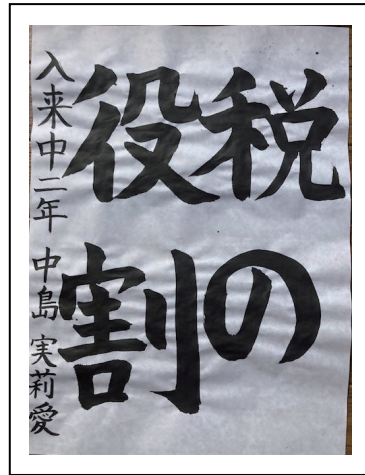 税の
役割
入来中二年 中島 実莉愛